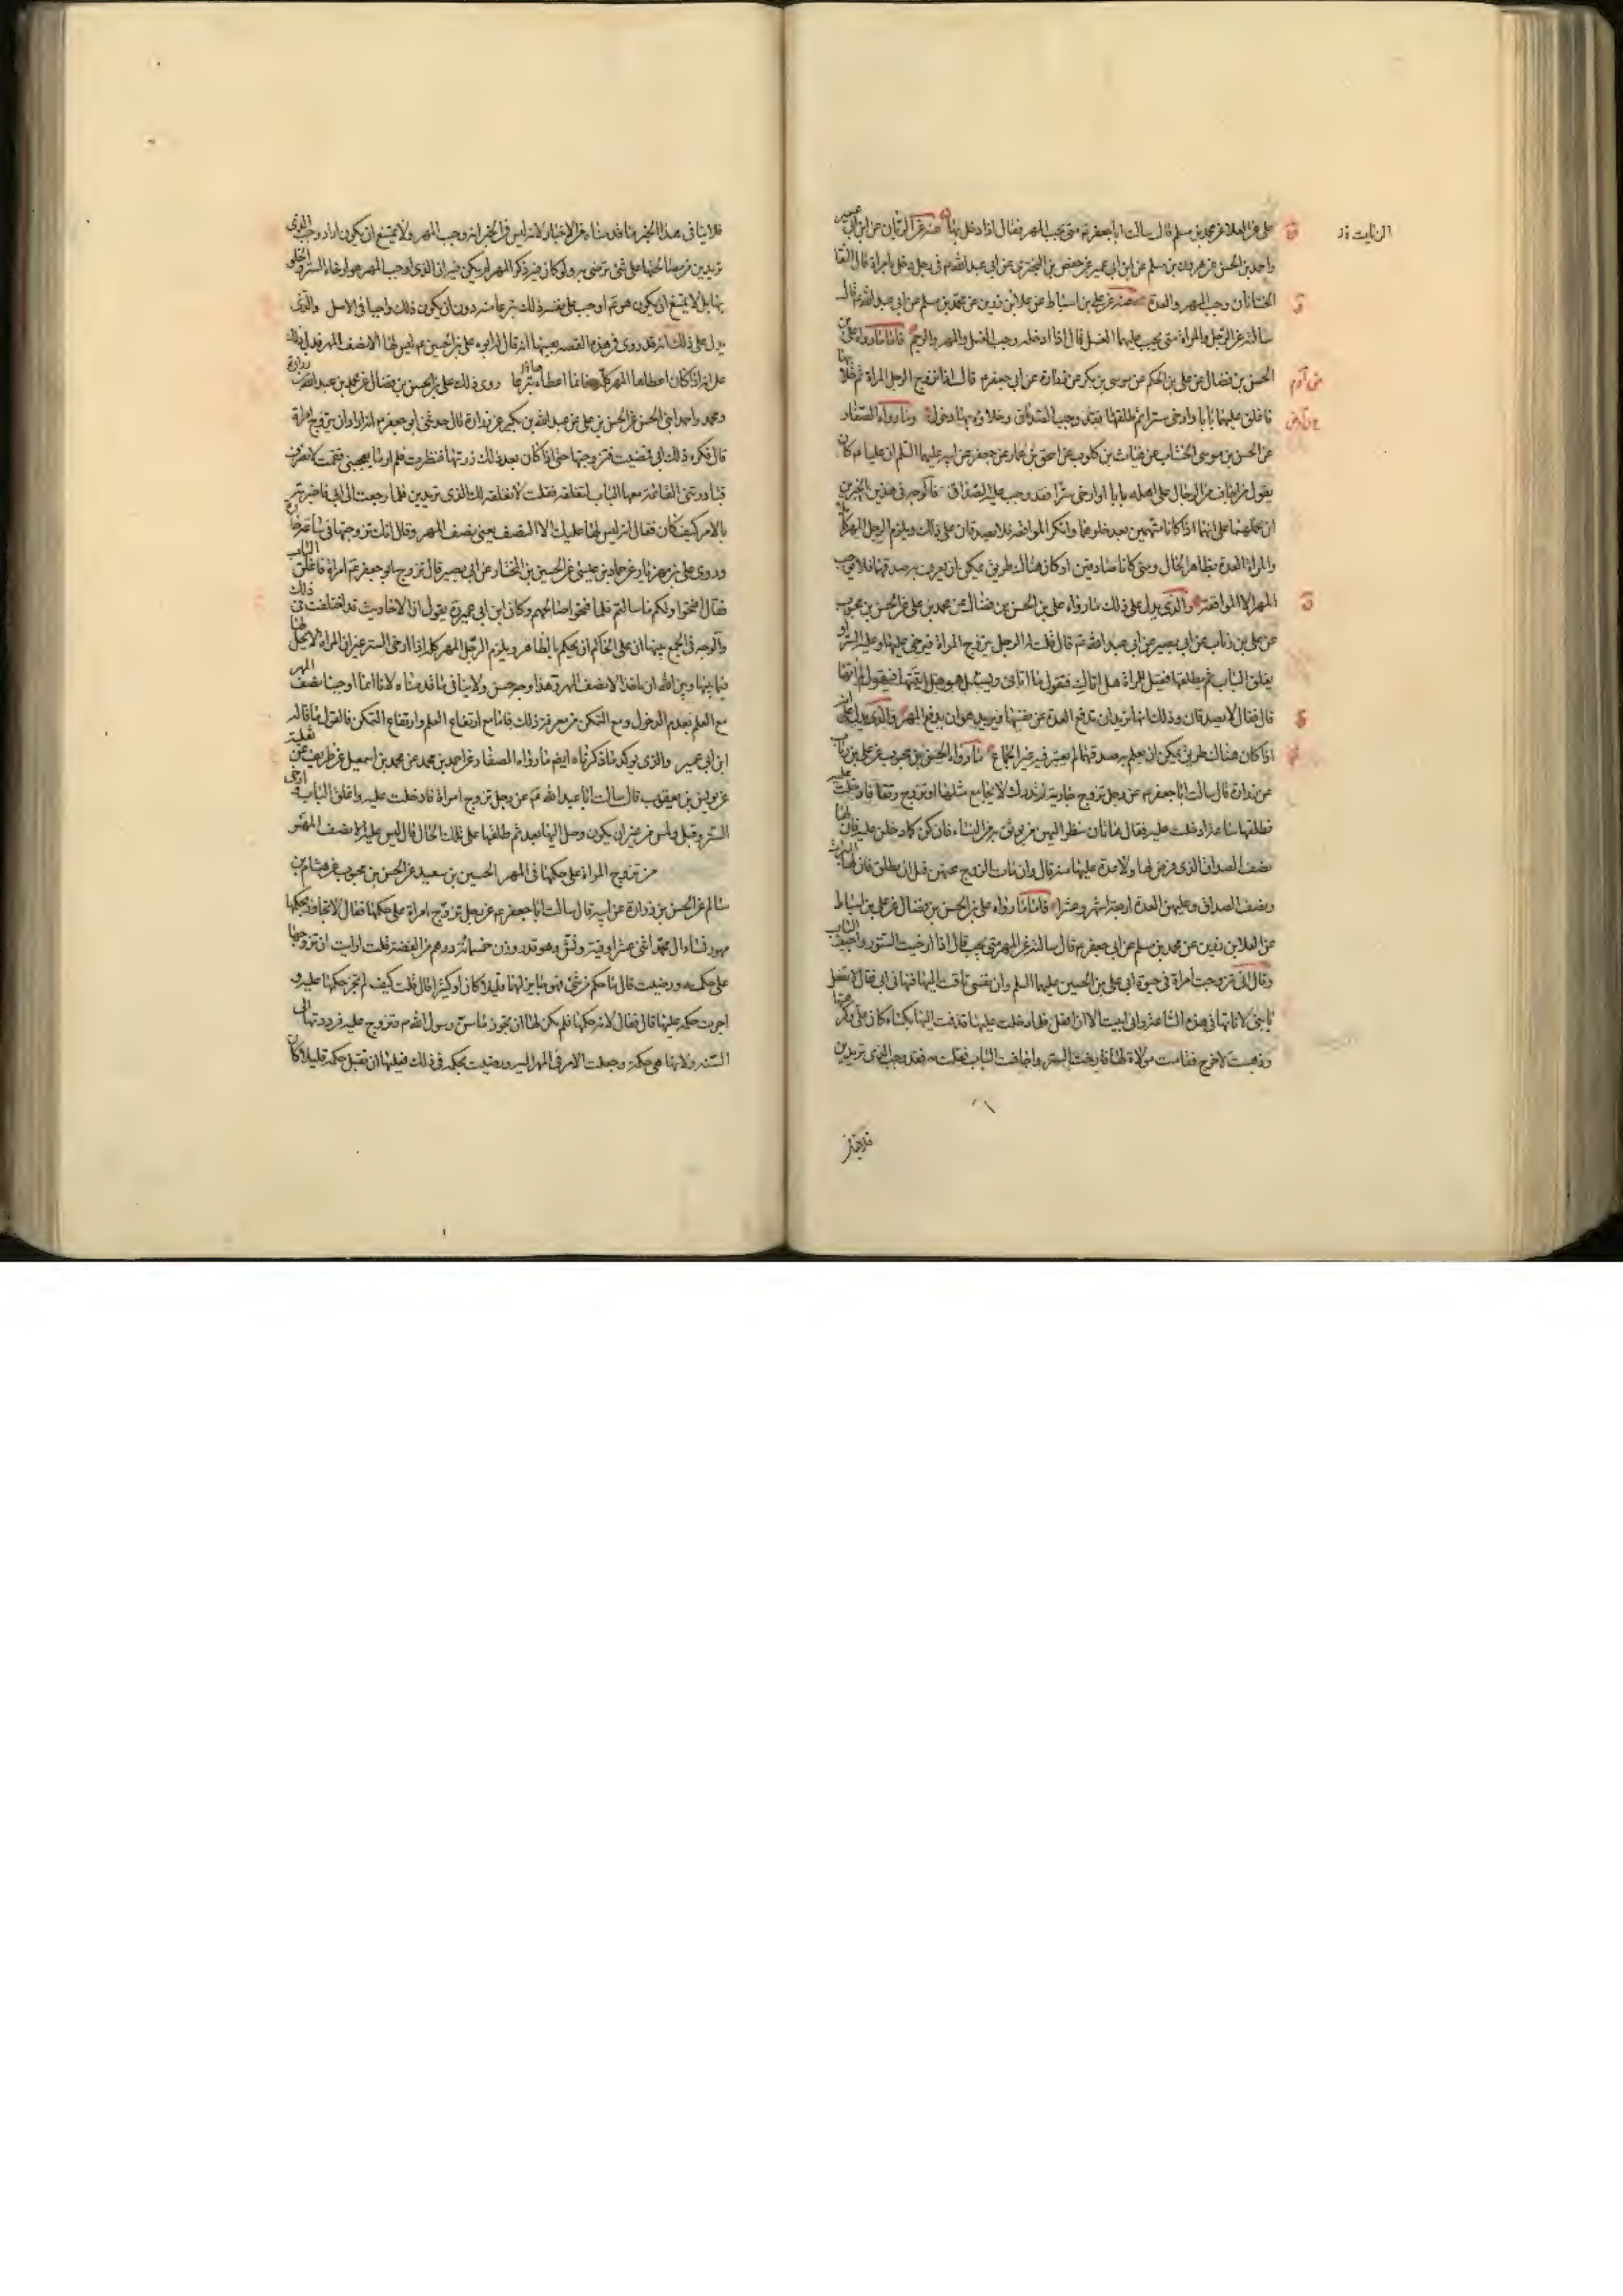 علي عن العلا عن محمد بن مسلم قال سالت ابا جعفر ع متى يجب المهر فقال اذا دخل بها عنه عن الزيات عن ابن ابي عمير
واحمد بن الحسن عن هرون بن مسلم عن ابن ابي عمير عن حفص بن البختري عن ابي عبد الله ع في رجل دخل بامراة قال اذا التقا
الختانان وجب المهر والعدة عنه عن علي بن اسباط عن علا بن رزين عن محمد بن مسلم عن ابي عبد الله ع قال
سالته عن الرجل والمراة متى يجب عليهما الغسل قال اذا ادخله وجب الغسل والمهر والرجم فاما ما رواه علي بن
الحسن بن فضال عن علي بن الحكم عن موسى بن بكر عن زرارة عن ابي جعفر ع قال اذا تزوج الرجل المراة ثم خلا بها
فاغلق عليها بابا وارخى سترا ثم طلقها فقد وجب الصداق وخلاؤه بها دخول وما رواه الصفار
عن الحسن بن موسى الخشاب عن غياث بن كلوب عن اسحق بن عمار عن جعفر عن ابيه عليهما السلم ان عليا ع كان
يقول من اجاف من الرجال على اهله بابا او ارخى سترا فقد وجب عليه الصداق فالوجه في هذين الخبرين
ان نحملهما على انهما اذا كانا متهمين بعد خلوهما وانكرا المواقعة فلا يصدقان على ذلك ويلزم الرجل المهر كله
والمراة العدة بظاهر الحال ومتى كانا صادقين او كان هناك طريق يمكن ان يعرف به صدقهما فلا يوجب
المهر الا المواقعة والذي يدل على ذلك ما رواه علي بن الحسن بن فضال عن محمد بن علي عن الحسن بن محبوب
عن علي بن رئاب عن ابي بصير عن ابي عبد الله ع قال قلت له الرجل يتزوج المراة فيرخي عليها وعليه الستر او
يغلق الباب ثم يطلقها فقيل للمراة هل اتاك فتقول ما اتاني ويسئل هو هل اتيتها فيقول لم اتها
قال فقال لا يصدقان وذلك انها تريد ان تدفع العدة عن نفسها ويريد هو ان يدفع المهر والذي يدل على انه
اذا كان هناك طريق يمكن ان يعلم به صدقهما لم يعتبر فيه غير الجماع ما رواه الحسن بن محبوب عن علي بن رئاب
عن زرارة قال سالت ابا جعفر ع عن رجل تزوج جارية لم تدرك لا يجامع مثلها او تزوج رتقا فادخلت عليه
فطلقها ساعة ادخلت عليه فقال هاتان ينظر اليهن من يوثق به من النساء فان كن كما دخلن عليه فان لها
نصف الصداق الذي فرض لها ولا عدة عليها منه قال وان مات الزوج عنهن قبل ان يطلق فان لها الميراث
ونصف الصداق وعليهن العدة اربعة اشهر وعشرا فاما ما رواه علي بن الحسن بن فضال عن علي بن اسباط
عن العلا بن رزين عن محمد بن مسلم عن ابي جعفر ع قال سالته عن المهر متى يجب قال اذا ارخيت الستور واجيف الباب
وقال اني تزوجت امراة في حيوة ابي علي بن الحسين عليهما السلم وان نفسي تاقت اليها فنهاني ابي فقال لا تفعل
يا بني لا تاتها في هذه الساعة واني ابيت الا ان افعل فلما دخلت عليها قذفت اليها بكساء كان علي وكرهتها
وذهبت لاخرج فقامت مولاة لها فارخت الستر واجافت الباب فقلت مه فقد وجب الذي تريدين
فلا ينافي هذا الخبر ما قدمناه من الاخبار لانه ليس في الخبر انه وجب المهر ولا يمتنع ان يكون اراد وجب الذي
تريدين من مصالحتها على شئ ترضى به ولو كان فيه ذكر المهر لم يكن فيه ان الذي اوجب المهر هو ارخاء الستر والخلو
بها بل لا يمتنع ان يكون هو ع اوجب على نفسه ذلك تبرعا منه دون ان يكون ذلك واجبا في الاصل والذي
يدل على ذلك انه قد روى في هذه القصة بعينها انه قال له ابوه علي بن الحسين ع ليس لها الا نصف المهر فدل ذلك
على انه اذا كان اعطاها المهر كله فانما اعطاه تبرعا روى ذلك علي بن الحسن بن فضال عن محمد بن عبد الله بن زرارة
ومحمد واحمد ابني الحسن عن الحسن بن علي عن عبد الله بن بكير عن زرارة قال حدثني ابو جعفر ع انه اراد ان يتزوج امراة
قال فكره ذلك ابي فمضيت فتزوجتها حتى اذا كان بعد ذلك زرتها فنظرت فلم ار ما يعجبني فقمت لانصرف
فبادرتني القائمة معها الباب لتغلقه فقلت لا تغلقيه لك الذي تريدين فلما رجعت الى ابي فاخبرته
بالامر كيف كان فقال انه ليس لها عليك الا النصف يعني نصف المهر وقال انك تزوجتها في ساعة حارة
وروى علي بن مهزيار عن حماد بن عيسى عن الحسين بن المختار عن ابي بصير قال تزوج ابو جعفر ع امراة فاغلق الباب
فقال افتحوا ولكم ما سالتم فلما فتحوا صالحهم وكان ابن ابي عمير ره يقول ان الاحاديث قد اختلفت في ذلك
والوجه في الجمع بينها ان على الحاكم ان يحكم بالظاهر ويلزم الرجل المهر كله اذا ارخى الستر غير ان المراة لا يحل لها
فيما بينها وبين الله ان ياخذ الا نصف المهر وهذا وجه حسن ولا ينافي ما قدمناه لانا انما اوجبنا نصف المهر
مع العلم بعدم الدخول ومع التمكن من معرفة ذلك فاما مع ارتفاع العلم وارتفاع التمكن فالقول ما قاله
ابن ابي عمير والذي يوكد ما ذكرناه ايضا ما رواه الصفار عن احمد بن محمد عن محمد بن اسمعيل عن ظريف عن ثعلبة
عن يونس بن يعقوب قال سالت ابا عبد الله ع عن رجل تزوج امراة فادخلت عليه واغلق الباب وارخى
الستر وقبل ولمس من غير ان يكون وصل اليها بعد ثم طلقها على تلك الحال قال ليس عليه الا نصف المهر
من تزوج المراة على حكمها في المهر الحسين بن سعيد عن الحسن بن محبوب عن هشام بن
سالم عن الحسن بن زرارة عن ابيه قال سالت ابا جعفر ع عن رجل تزوج امراة على حكمها فقال لا يتجاوز بحكمها
مهور نساء ال محمد اثني عشر اوقية ونش وهو قدر وزن خمسمائة درهم من الفضة قلت ارايت ان تزوجها
على حكمه ورضيت قال ما حكم من شئ فهو جايز لها قليلا كان او كثيرا قال قلت كيف لم تجز حكمها عليه و
اجزت حكمه عليها قال فقال لانه حكمها فلم يكن لها ان تجوز ما سن رسول الله ص وتزوج عليه فرددتها الى
السنة ولانها هي حكمته وجعلت الامر في المهر اليه ورضيت بحكمه في ذلك فعليها ان تقبل حكمه قليلا كان